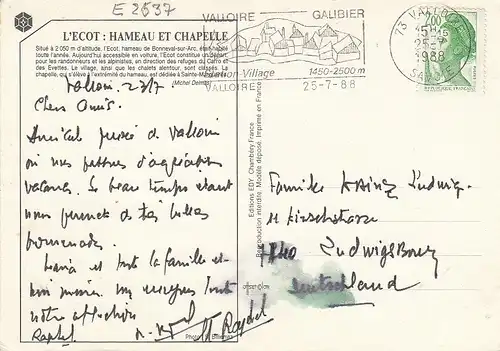 E 2537
L'ECOT : HAMEAU ET CHAPELLE
Situé à 2 050 m d'altitude, l'Ecot, hameau de Bonneval-sur-Arc, était habité
toute l'année. Aujourd'hui accessible en voiture, l'Ecot constitue un départ
pour les randonneurs et les alpinistes, en direction des refuges du Carro et
des Evettes. Le village, ainsi que les chalets alentour, sont classés. La
chapelle, qui s'élève à l'extrémité du hameau, est dédiée à Sainte-
(Michel Delmas)
VALLOIRE GALIBIER
Station-Village 1450-2500 m
VALLOIRE 25-7-88
73 VALLOIRE
15H
25-7
1988
SAVOIE
2,00
REPUBLIQUE FRANÇAISE
Valloire 23/7
Chers Amis.
Amicale pensée de Valloire
où nous passons d'agréables
vacances. Le beau temps étant
nous permet de très belles
promenades.
Maria et toute la famille et
moi même, vous envoyons toute
notre affection
Raphel
Editions EDY, Chambéry France
Reproduction interdite. Modèle déposé. Imprimé en France
offset-plan
Photo
Familie Ludwig
11 Kirschstrasse
7140 Ludwigsbourg
Deutschland